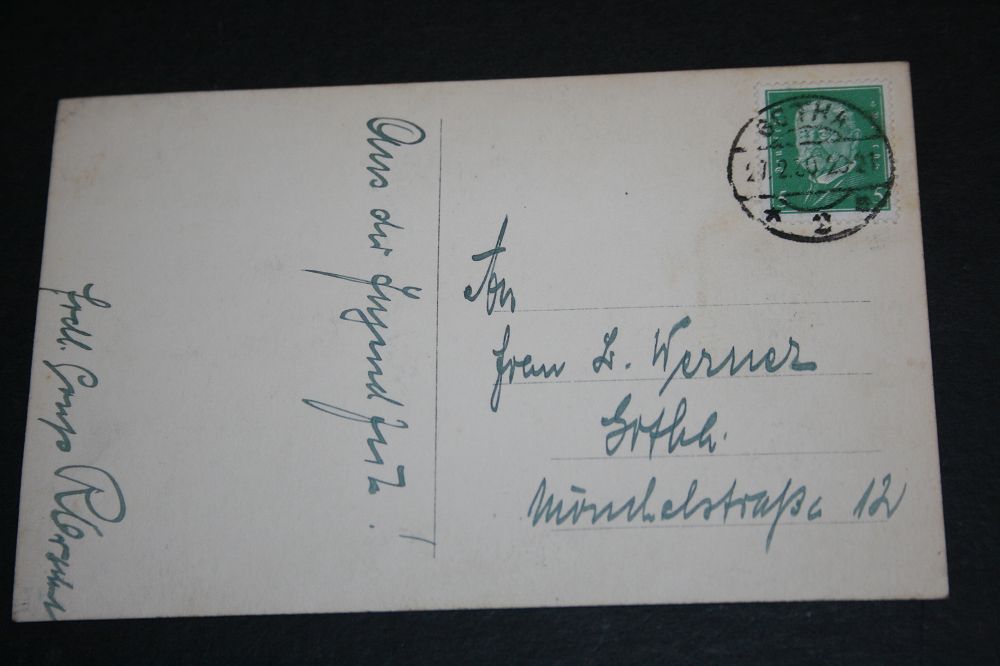 Aus der Jugendzeit!
Frdl. Gruß
GOTHA
27.2.30
* 2
5 5
An
Frau L. Werner
Gotha.
Mönchelstraße 12